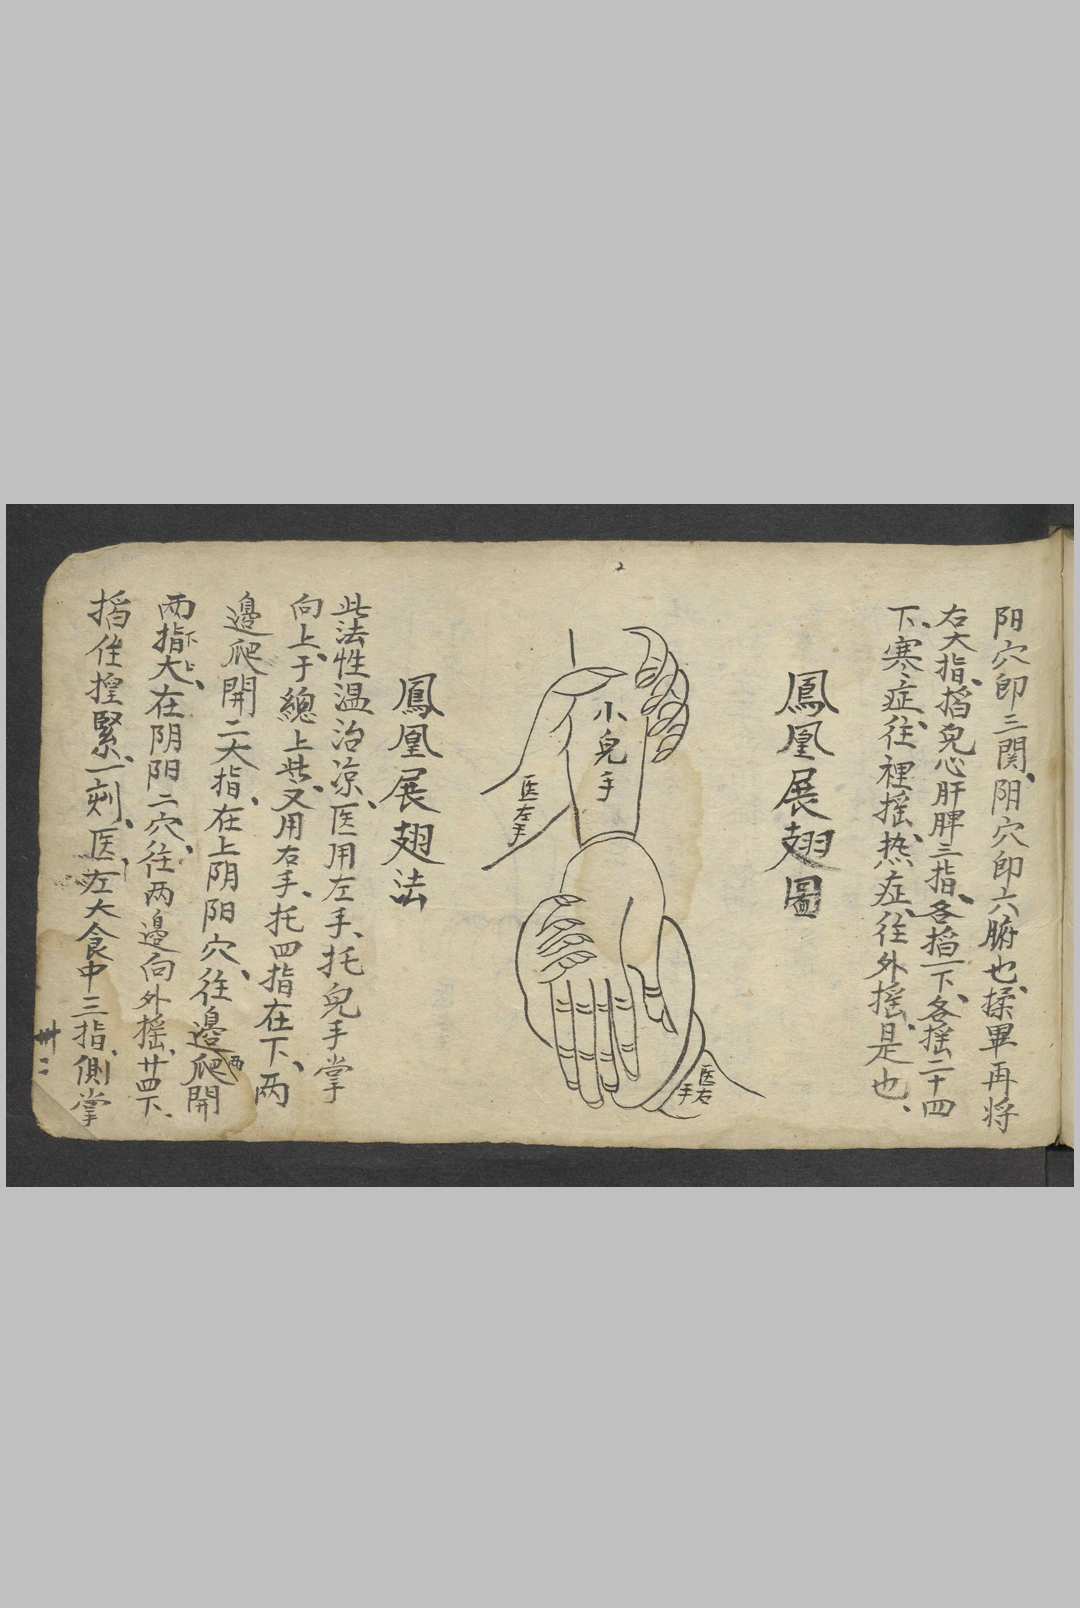 阳穴即三関、阴穴即六腑也、揉畢再将
右大指、掐兒心肝脾三指、各掐一下、各摇二十四
下、寒症、往裡摇、热症、往外摇、是也、
鳳凰展翅圖
小兒手
医左手
医右手
鳳凰展翅法
此法性温治凉、医用左手、托兒手掌
向上、于總上些、又用右手、托四指在下、两
邊爬開二大指、在上阴阳穴、往两邊爬開
两指大下上、在阴阳二穴、往两邊向外摇、廿四下、
掐住捏緊一刻、医左大食中三指、側掌
卅二